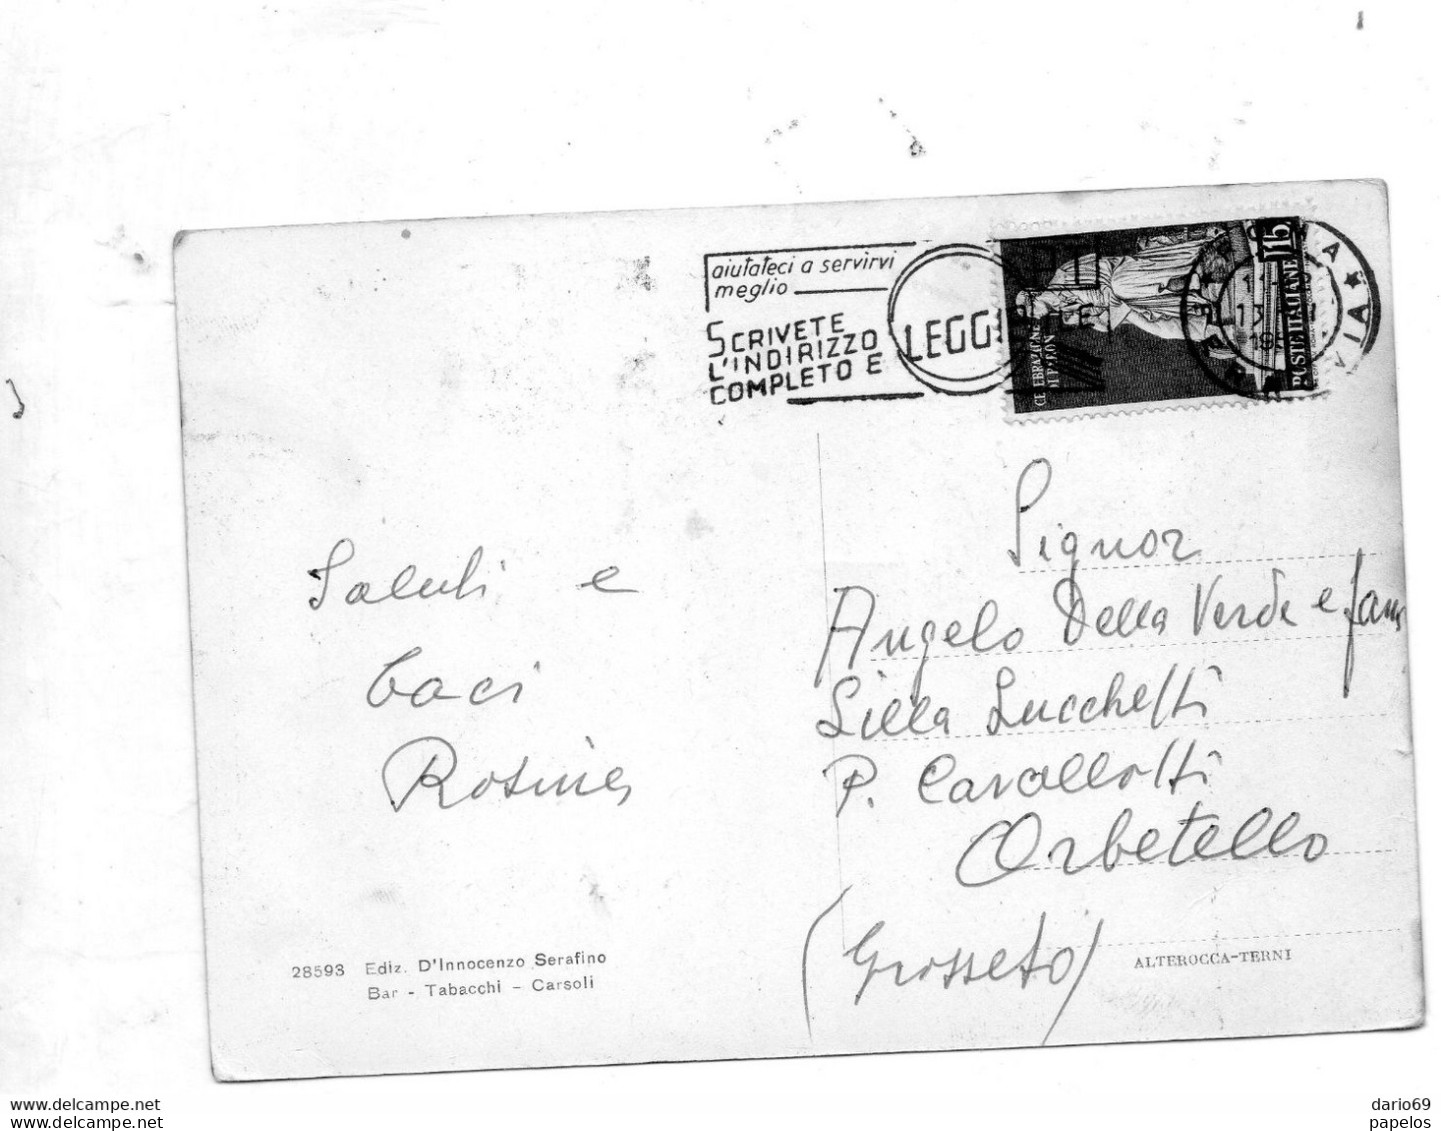 aiutateci a servirvi
meglio
SCRIVETE
L'INDIRIZZO
COMPLETO E
15
POSTE ITALIANE
CELEBRAZIONE
Saluti e
baci
Rosina
Signor
Angelo Della Verde e fam
Lilla Lucchetti
P. Cavallotti
Orbetello
(Grosseto)
28593 Ediz. D'Innocenzo Serafino
Bar - Tabacchi - Carsoli
ALTEROCCA-TERNI
www.delcampe.net
www.delcampe.net
dario69
papelos